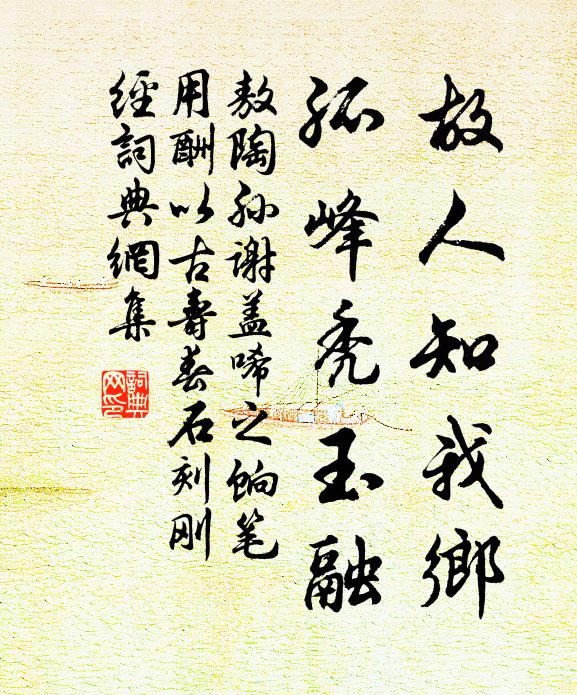 故人知我鄉
孤峰禿玉融
敖陶孫謝盖唏之餉笔
用酬以古壽春石刻刚
經詞典網集
詞典
网印